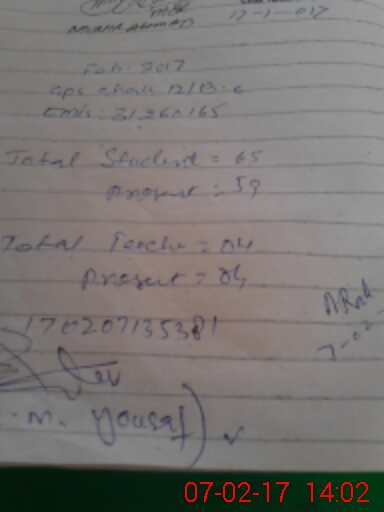 17-1-017
Feb. 2017
Gps Chak 12/13-c
Emis: 31260165
Total Student = 65
Present = 59
Total Teache = 04
Present = 04
170207135381
M. Yousaf)
07-02-17 14:02